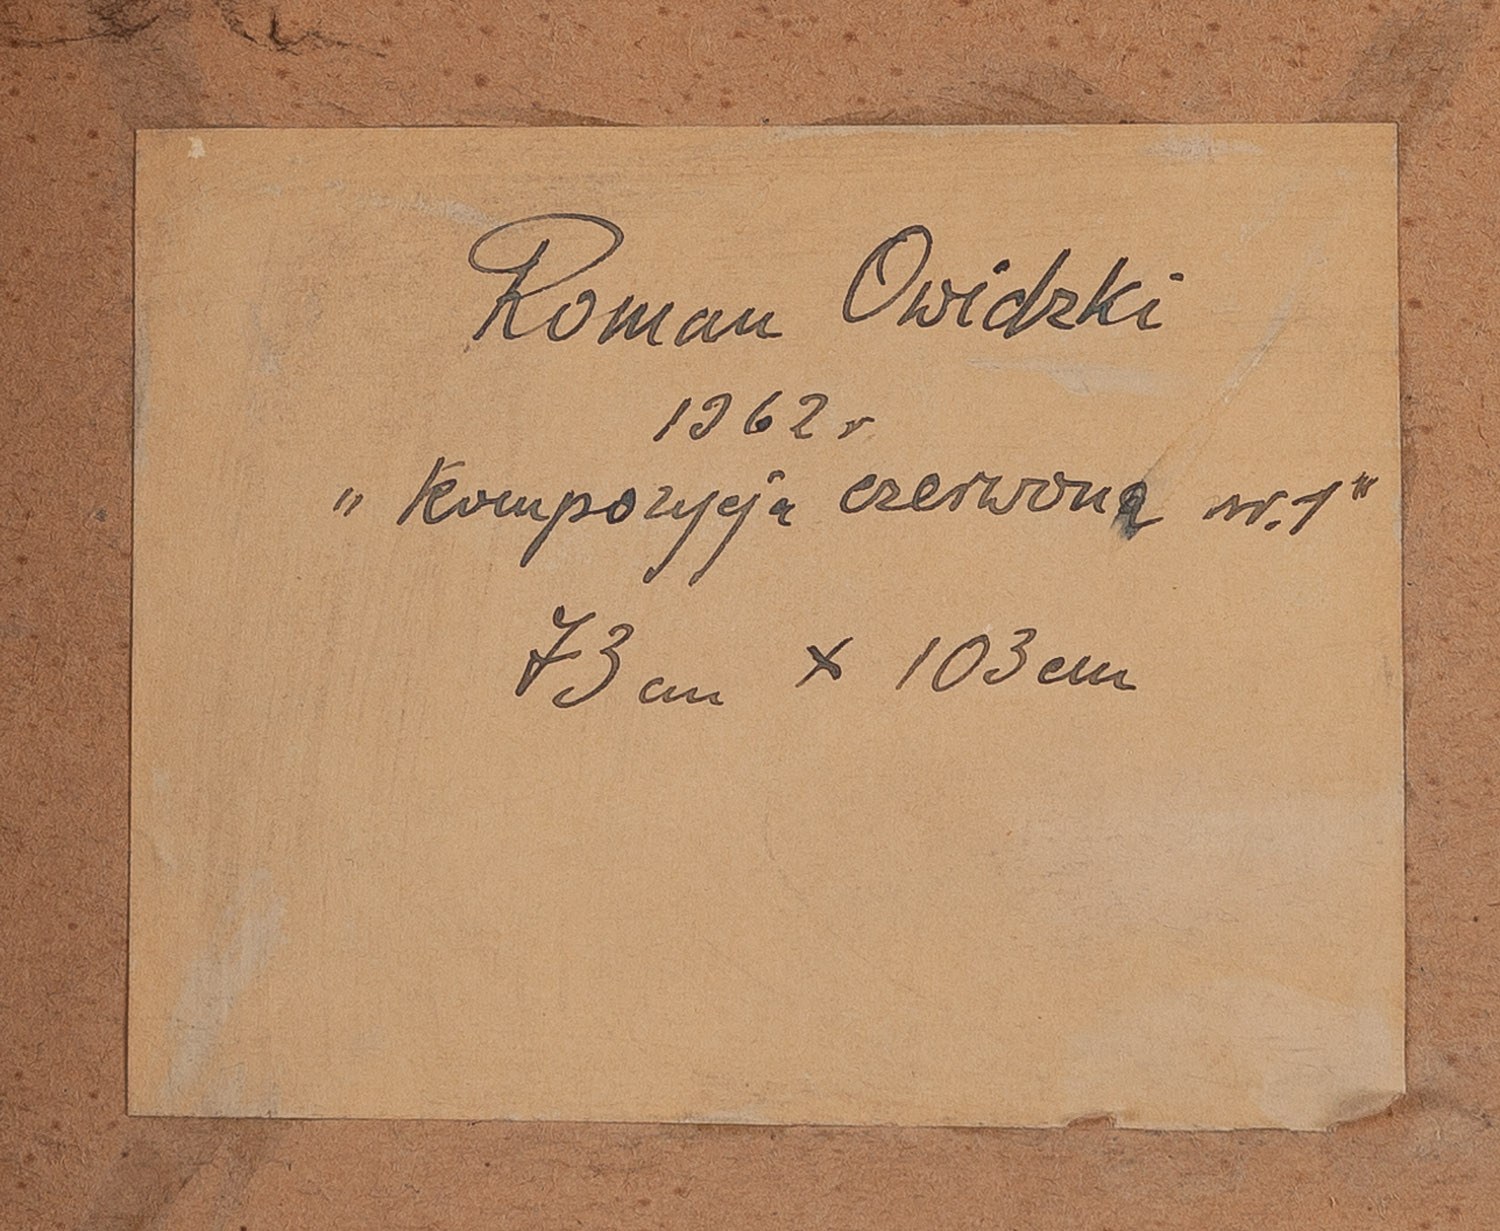 Roman Owidzki
1962 r
„Kompozycja czerwona nr. 1"
73 cm x 103 cm